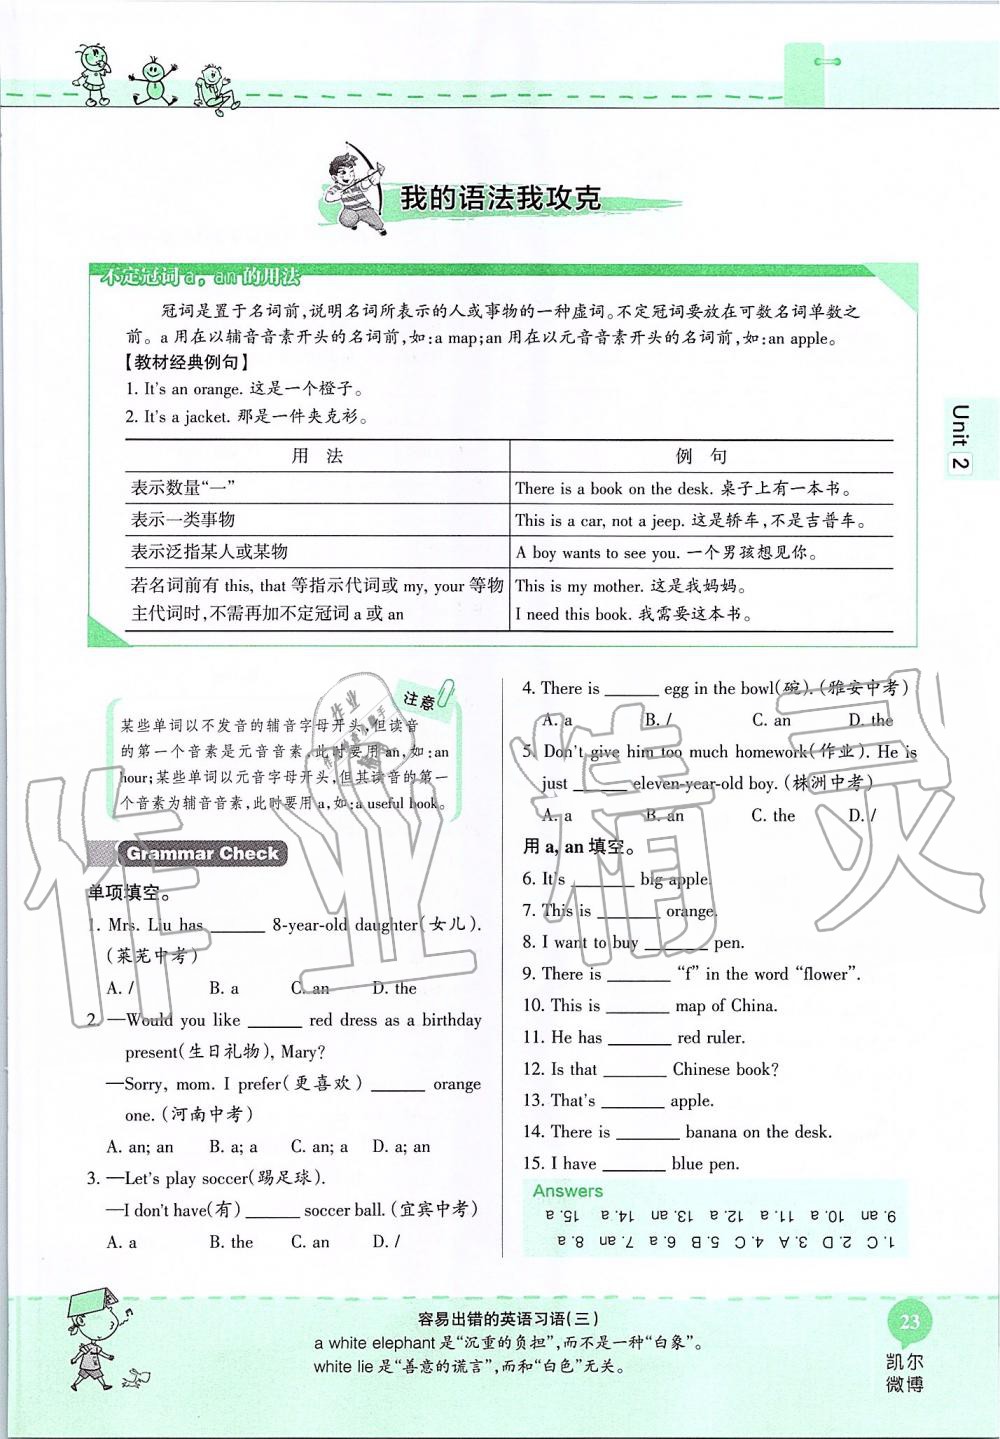 我的语法我攻克
不定冠词 a，an 的用法
冠词是置于名词前,说明名词所表示的人或事物的一种虚词。不定冠词要放在可数名词单数之
前。a 用在以辅音音素开头的名词前,如:a map;an 用在以元音音素开头的名词前,如:an apple。
【教材经典例句】
1. It's an orange. 这是一个橙子。
2. It's a jacket. 那是一件夹克衫。
用 法 例 句
表示数量“一” There is a book on the desk. 桌子上有一本书。
表示一类事物 This is a car, not a jeep. 这是轿车,不是吉普车。
表示泛指某人或某物 A boy wants to see you. 一个男孩想见你。
若名词前有 this, that 等指示代词或 my, your 等物 This is my mother. 这是我妈妈。
主代词时,不需再加不定冠词 a 或 an I need this book. 我需要这本书。
Unit 2
注意
某些单词以不发音的辅音字母开头,但读音
的第一个音素是元音音素,此时要用 an,如:an
hour;某些单词以元音字母开头,但其读音的第一
个音素为辅音音素,此时要用 a,如:a useful book。
Grammar Check
单项填空。
1. Mrs. Liu has ______ 8-year-old daughter(女儿).
(莱芜中考)
A. / B. a C. an D. the
2. —Would you like ______ red dress as a birthday
present(生日礼物), Mary?
—Sorry, mom. I prefer(更喜欢) ______ orange
one. (河南中考)
A. an; an B. a; a C. an; a D. a; an
3. —Let's play soccer(踢足球).
—I don't have(有) ______ soccer ball. (宜宾中考)
A. a B. the C. an D. /
4. There is ______ egg in the bowl(碗). (雅安中考)
A. a B. / C. an D. the
5. Don't give him too much homework(作业). He is
just ______ eleven-year-old boy. (株洲中考)
A. a B. an C. the D. /
用 a, an 填空。
6. It's ______ big apple.
7. This is ______ orange.
8. I want to buy ______ pen.
9. There is ______ “f” in the word “flower”.
10. This is ______ map of China.
11. He has ______ red ruler.
12. Is that ______ Chinese book?
13. That's ______ apple.
14. There is ______ banana on the desk.
15. I have ______ blue pen.
Answers
1. C 2. D 3. A 4. C 5. B 6. a 7. an 8. a
9. an 10. a 11. a 12. a 13. an 14. a 15. a
容易出错的英语习语(三)
a white elephant 是“沉重的负担”,而不是一种“白象”。
white lie 是“善意的谎言”,而和“白色”无关。
23
凯尔
微博
作业精灵